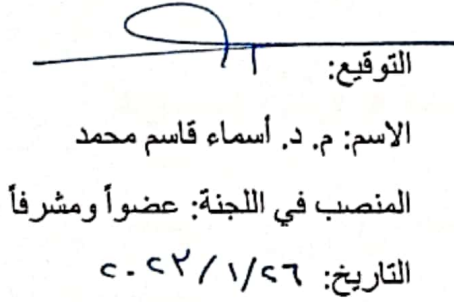 التوقيع:
الاسم: م. د. أسماء قاسم محمد
المنصب في اللجنة: عضواً ومشرفاً
التاريخ: ٢٦/ ١/ ٢٠٢٣